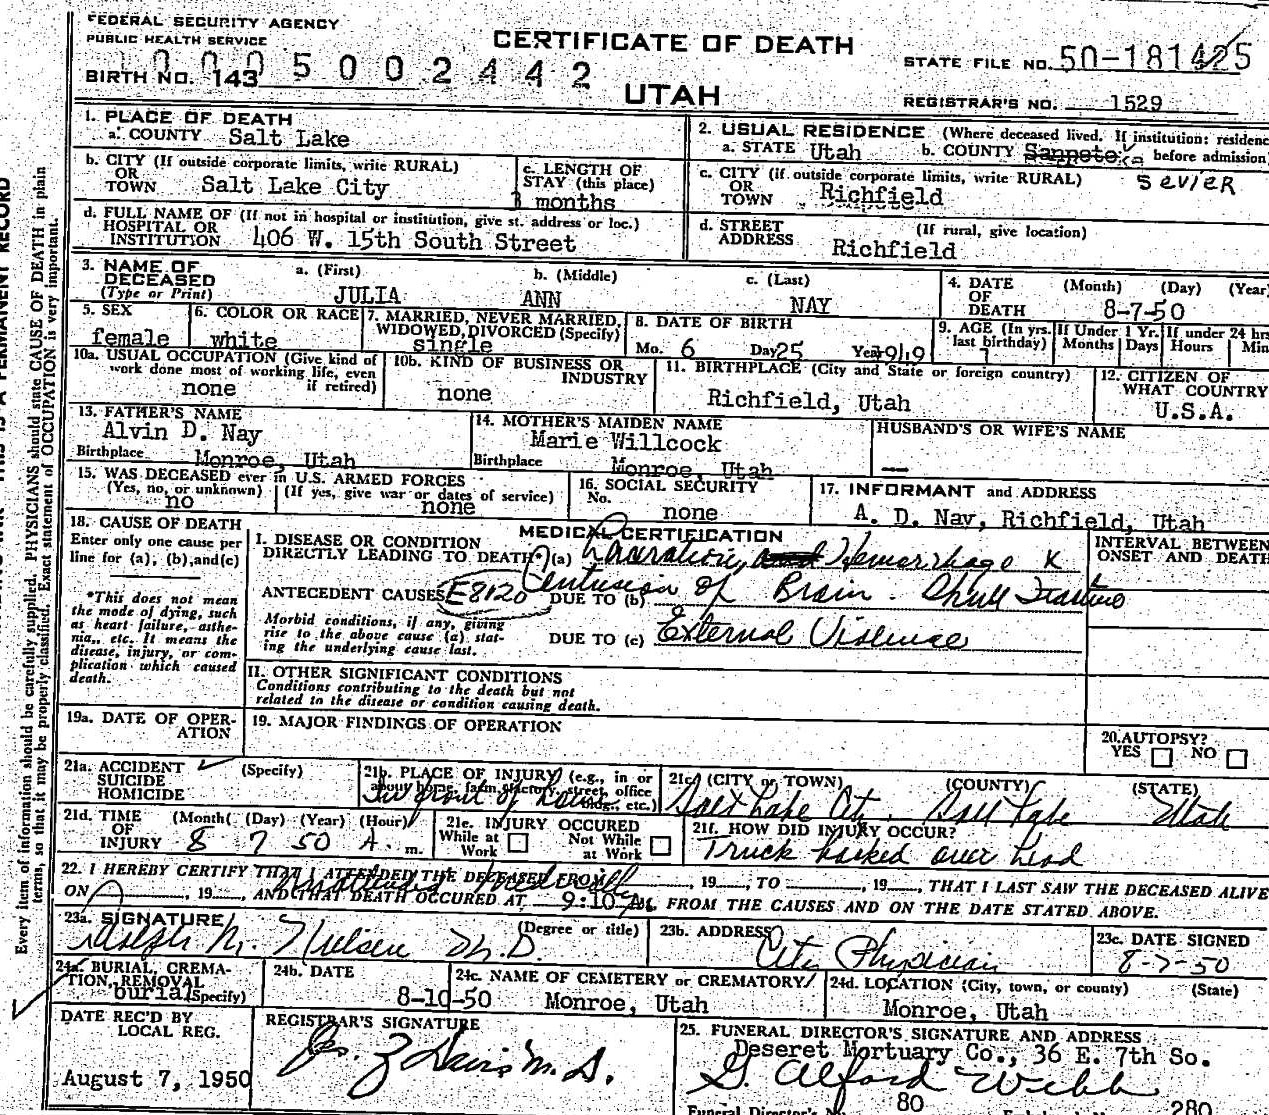 FEDERAL SECURITY AGENCY
PUBLIC HEALTH SERVICE
CERTIFICATE OF DEATH
STATE FILE NO. 50-181425
BIRTH NO. 143 0005002442
UTAH
REGISTRAR'S NO. 1529
1. PLACE OF DEATH
a. COUNTY Salt Lake
2. USUAL RESIDENCE (Where deceased lived. If institution: residence
a. STATE Utah b. COUNTY Sanpete before admission)
SEVIER
b. CITY (If outside corporate limits, write RURAL)
OR
TOWN Salt Lake City
c. LENGTH OF
STAY (this place)
3 months
c. CITY (if outside corporate limits, write RURAL)
OR
TOWN Richfield
d. FULL NAME OF (If not in hospital or institution, give st. address or loc.)
HOSPITAL OR
INSTITUTION 406 W. 15th South Street
d. STREET (If rural, give location)
ADDRESS Richfield
3. NAME OF
DECEASED
(Type or Print)
a. (First) b. (Middle) c. (Last)
JULIA ANN NAY
4. DATE (Month) (Day) (Year)
OF
DEATH 8-7-50
5. SEX
female
6. COLOR OR RACE
white
7. MARRIED, NEVER MARRIED,
WIDOWED, DIVORCED (Specify)
single
8. DATE OF BIRTH
Mo. 6 Day 25 Year 1949
9. AGE (In yrs.
last birthday)
1
If Under 1 Yr.
Months Days
If under 24 hrs
Hours Min
10a. USUAL OCCUPATION (Give kind of
work done most of working life, even
if retired)
none
10b. KIND OF BUSINESS OR
INDUSTRY
none
11. BIRTHPLACE (City and State or foreign country)
Richfield, Utah
12. CITIZEN OF
WHAT COUNTRY
U.S.A.
13. FATHER'S NAME
Alvin D. Nay
Birthplace Monroe, Utah
14. MOTHER'S MAIDEN NAME
Marie Willcock
Birthplace Monroe, Utah
HUSBAND'S OR WIFE'S NAME
—
15. WAS DECEASED ever in U.S. ARMED FORCES
(Yes, no, or unknown) (If yes, give war or dates of service)
no none
16. SOCIAL SECURITY
No.
none
17. INFORMANT and ADDRESS
A. D. Nay, Richfield, Utah
18. CAUSE OF DEATH
Enter only one cause per
line for (a), (b), and (c)
*This does not mean
the mode of dying, such
as heart failure, asthe-
nia, etc. It means the
disease, injury, or com-
plication which caused
death.
MEDICAL CERTIFICATION
INTERVAL BETWEEN
ONSET AND DEATH
I. DISEASE OR CONDITION
DIRECTLY LEADING TO DEATH (a) Laceration, and Hemorrhage &
ANTECEDENT CAUSES E8120 DUE TO (b) Contusion of Brain. Skull Fracture
Morbid conditions, if any, giving
rise to the above cause (a) stat-
ing the underlying cause last.
DUE TO (c) External Violence
II. OTHER SIGNIFICANT CONDITIONS
Conditions contributing to the death but not
related to the disease or condition causing death.
19a. DATE OF OPER-
ATION
19. MAJOR FINDINGS OF OPERATION
20. AUTOPSY?
YES NO
21a. ACCIDENT (Specify)
SUICIDE
HOMICIDE
21b. PLACE OF INJURY (e.g., in or
about home, farm, factory, street, office
bldg., etc.)
In front of house
21c. (CITY or TOWN) (COUNTY) (STATE)
Salt Lake City, Salt Lake Utah
21d. TIME (Month) (Day) (Year) (Hour)
OF
INJURY 8 7 50 A. m.
21e. INJURY OCCURED
While at Work Not While at Work
21f. HOW DID INJURY OCCUR?
Truck backed over head
22. I HEREBY CERTIFY THAT I ATTENDED THE DECEASED FROM , 19 , TO , 19 , THAT I LAST SAW THE DECEASED ALIVE
ON , 19 , AND THAT DEATH OCCURED AT 9:10 A M, FROM THE CAUSES AND ON THE DATE STATED ABOVE.
23a. SIGNATURE (Degree or title)
M. Nielsen M.D.
23b. ADDRESS
City Physician
23c. DATE SIGNED
8-7-50
24a. BURIAL, CREMA-
TION, REMOVAL
(Specify)
burial
24b. DATE
8-10-50
24c. NAME OF CEMETERY or CREMATORY
Monroe, Utah
24d. LOCATION (City, town, or county) (State)
Monroe, Utah
DATE REC'D BY
LOCAL REG.
August 7, 1950
REGISTRAR'S SIGNATURE
M.D.
25. FUNERAL DIRECTOR'S SIGNATURE AND ADDRESS
Deseret Mortuary Co., 36 E. 7th So.
G. Alford Webb
Funeral Director's 80 280
Every item of information should be carefully supplied. PHYSICIANS should state CAUSE OF DEATH in plain
terms, so that it may be properly classified. Exact statement of OCCUPATION is very important.
THIS IS A PERMANENT RECORD